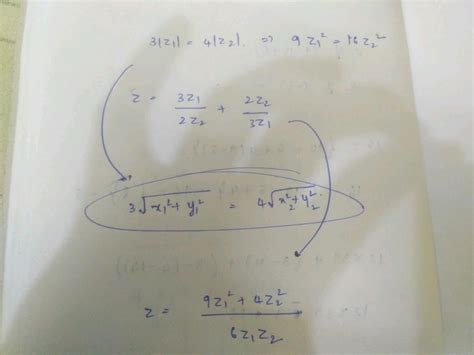 3|z₁| = 4|z₂|. or 9z₁² = 16z₂²
z = 3z₁/2z₂ + 2z₂/3z₁
3√x₁²+y₁² = 4√x₂²+y₂²
z = 9z₁² + 4z₂²/6z₁z₂